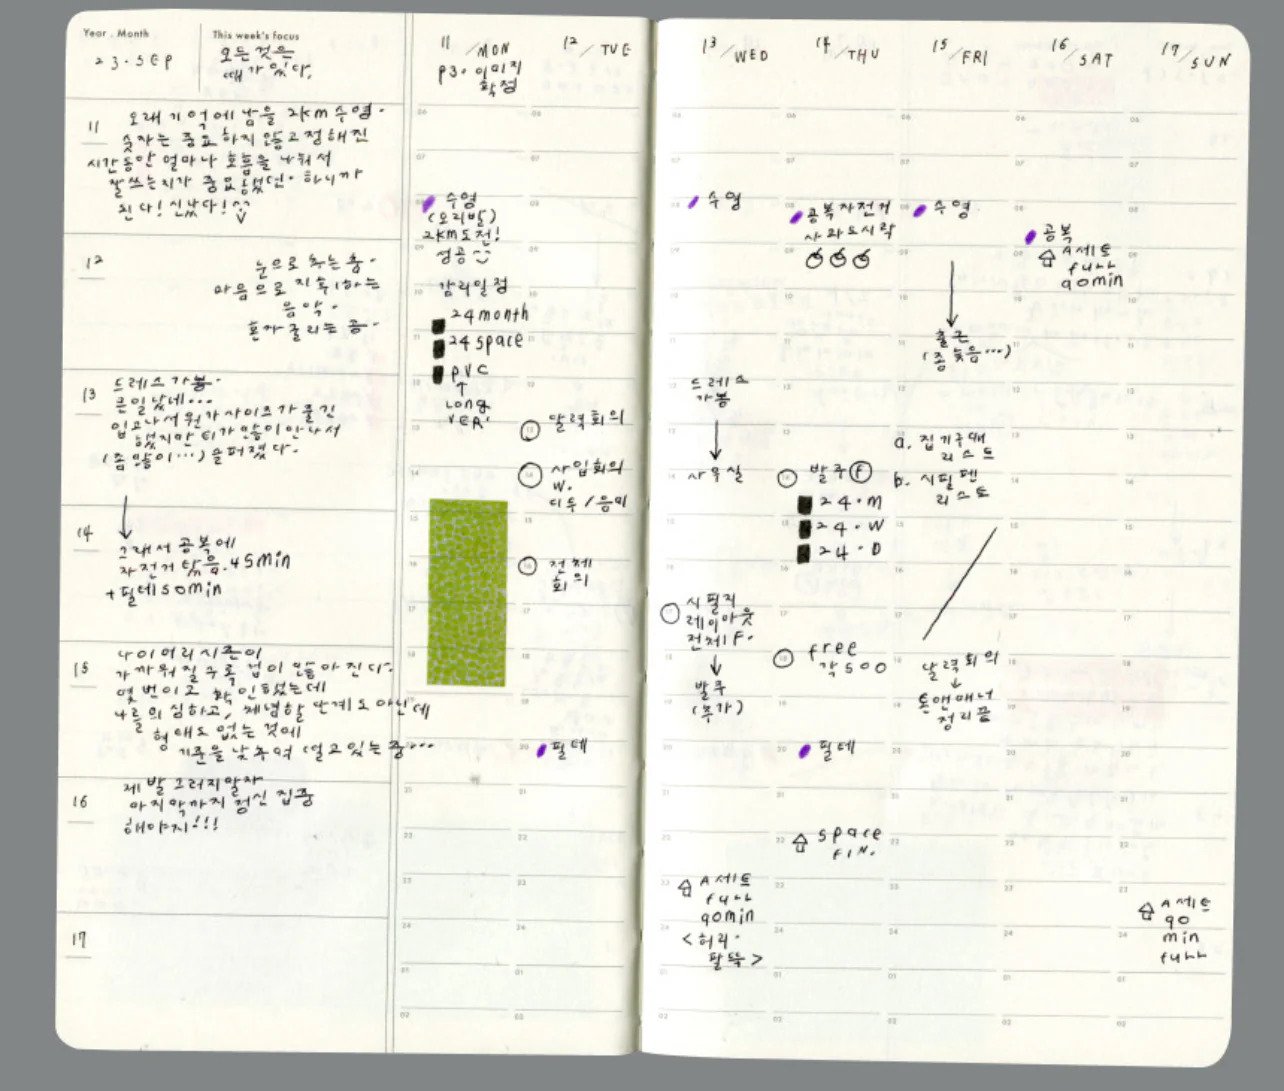 Year . Month
23.SEP
This week's focus
모든 것은
때가 있다.
11
오래 기억에 남을 2km 수영.
숫자는 중요하지 않고 정해진
시간동안 얼마나 호흡을 나눠서
잘 쓰는지가 중요했던. 하니까
된다! 신났다!
12
눈으로 추는 춤.
마음으로 지휘하는
음악.
혼자 굴리는 공.
13
드레스 가봉.
큰일났네...
입고나서 뭔가 사이즈가 줄긴
했지만 티가 많이 안나서
(좀 많이...) 슬퍼졌다.
14
그래서 공복에
자전거 탔음. 45min
+ 필테 50min
15
나이 어리시룬이
가까워질수록 겁이 많아진다.
몇번이고 확인했는데
나를 의심하고, 체념할 단계도 아닌데
형태도 없는 것에
기준을 낮추며 얼고 있는 중...
16
제발 그러지말자
마지막까지 정신 집중
해야지!!!
17
11/MON
p3. 이미지
확정
수영
(오리발)
2km도전!
성공
감리일정
24month
24space
pvc
↑
Long
VER.
12/TUE
13 달력회의
14 사입회의
W.
디두/음미
16 전체
회의
필테
13/WED
수영
드레스
가봉
사무실
시필지
레이아웃
전체 F.
발주
(추가)
A세트
full
90min
<허리.
팔뚝>
14/THU
공복자전거
사과도시락
14 발주 F
24.M
24.W
24.D
18 free
각 500
필테
space
FIN.
15/FRI
수영.
출근
(좀 늦음...)
a. 집기구매
리스트
b. 시필펜
리스트
달력회의
톤앤매너
정리끝
16/SAT
공복
A세트
full
90min
17/SUN
A세트
90
min
full